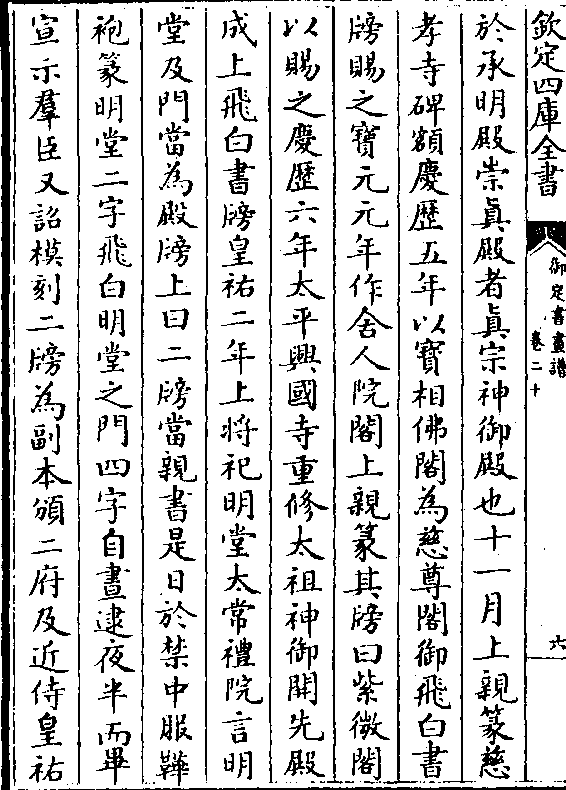 欽定四庫全書
御定書畫譜
卷二十
六
於承明殿崇真殿者真宗神御殿也十一月上親篆慈
孝寺碑額慶歷五年以寶相佛閣為慈尊閣御飛白書
牓賜之寶元元年作舍人院閣上親篆其牓曰紫微閣
以賜之慶歷六年太平興國寺重修太祖神御開先殿
成上飛白書牓皇祐二年上將祀明堂太常禮院言明
堂及門當為殿牓上曰二牓當親書是日於禁中服鞾
袍篆明堂二字飛白明堂之門四字自晝逮夜半而畢
宣示羣臣又詔模刻二牓為副本頒二府及近侍皇祐